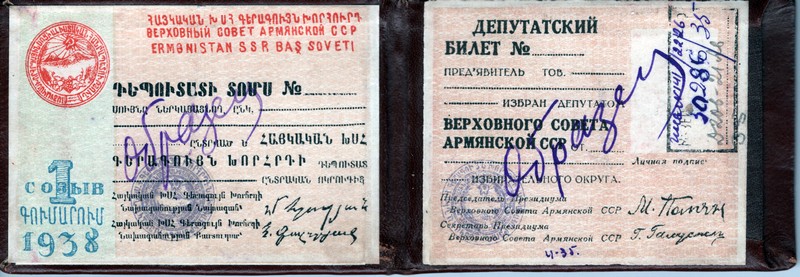 ՀԱՅԿԱԿԱՆ ԽՍՀ ԳԵՐԱԳՈՒՅՆ ԽՈՐՀՈՒՐԴ
ВЕРХОВНЫЙ СОВЕТ АРМЯНСКОЙ ССР
ERMƏNISTAN SSR BAŞ SOVETI
ԴԵՊՈՒՏԱՏԻ ՏՈՄՍ №
ՍՈՒՅՆԸ ՆԵՐԿԱՅԱՑՆՈՂ ԸՆԿ.
образец
ԸՆՏՐՎԱԾ Է ՀԱՅԿԱԿԱՆ ԽՍՀ
ԳԵՐԱԳՈՒՅՆ ԽՈՐՀՐԴԻ ԴԵՊՈՒՏԱՏ
ԸՆՏՐԱԿԱՆ
1
СОЗЫВ
ԳՈՒՄԱՐՈՒՄ
1938
Հայկական ԽՍՀ Գերագույն Խորհրդի
Նախագահության Նախագահ
Հայկական ԽՍՀ Գերագույն Խորհրդի
Նախագահության
ДЕПУТАТСКИЙ
БИЛЕТ №
ПРЕД'ЯВИТЕЛЬ ТОВ.
ИЗБРАН ДЕПУТАТОМ
ВЕРХОВНОГО СОВЕТА
АРМЯНСКОЙ ССР ОТ
Образец
Личная подпись
ИЗБИРАТЕЛЬНОГО ОКРУГА.
Председатель Президиума
Верховного Совета Армянской ССР
Секретарь Президиума
Верховного Совета Армянской ССР
30286/35